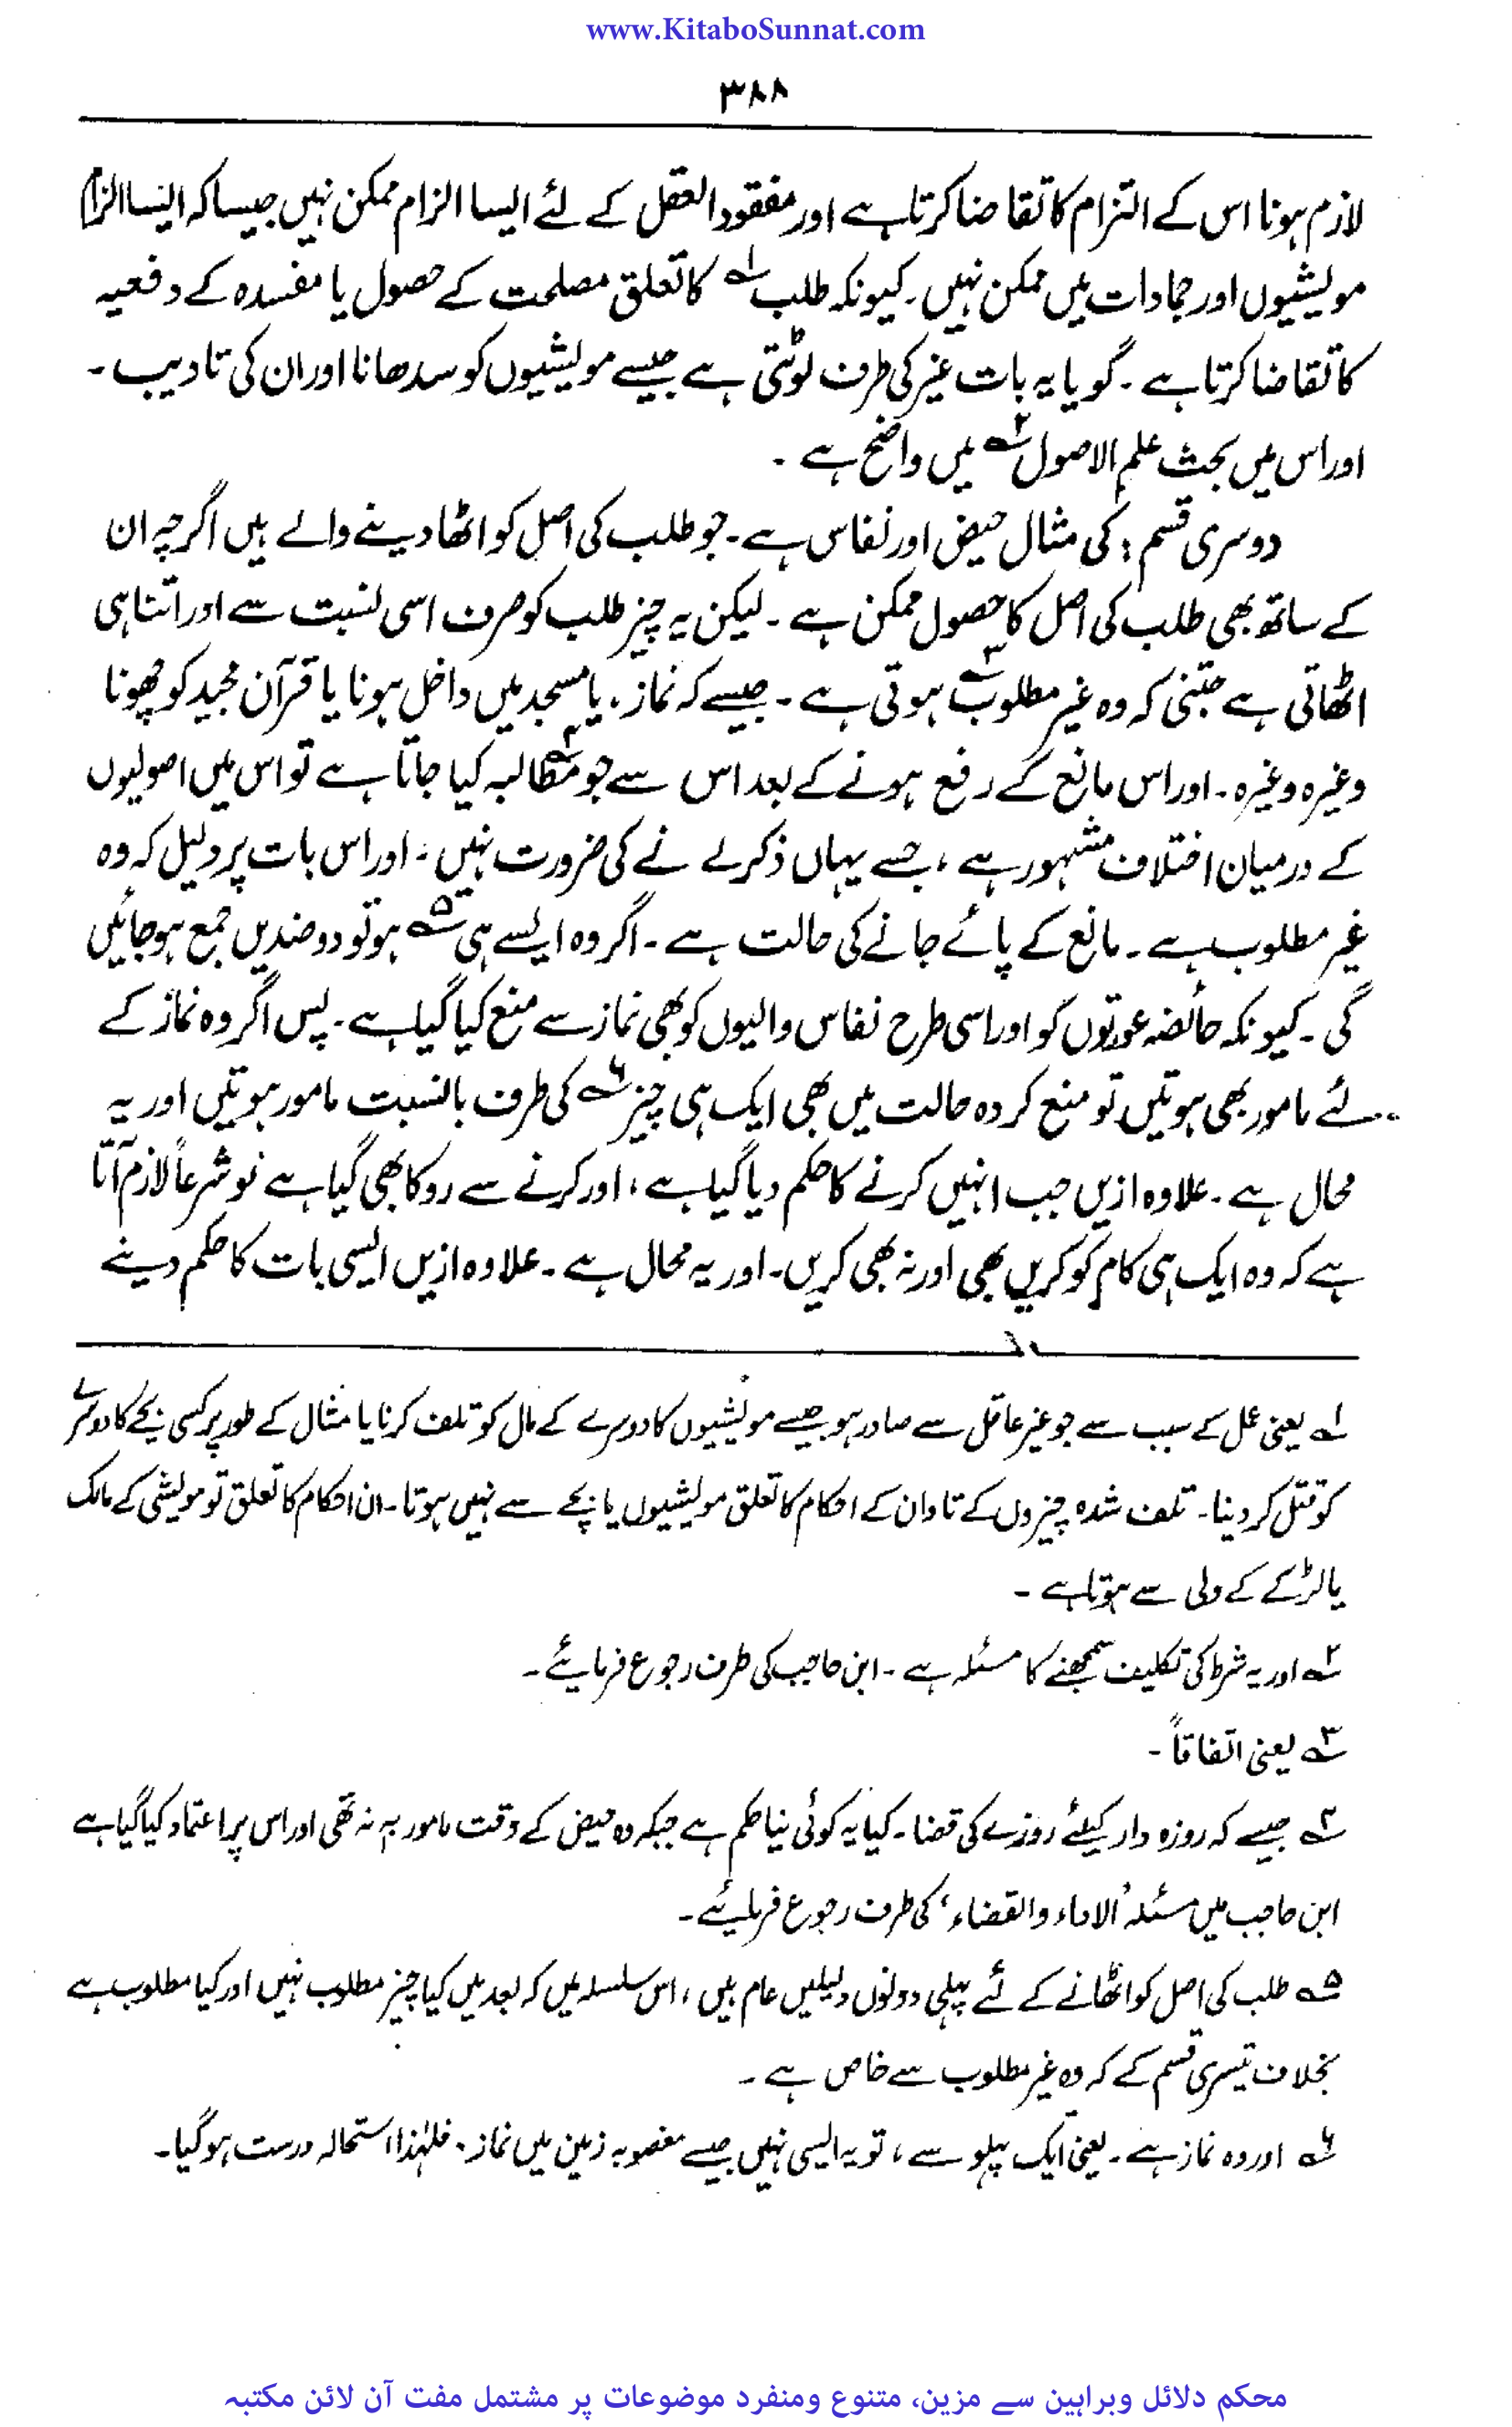 www.KitaboSunnat.com
۳۸۸
لازم ہونا اس کے التزام کا تقاضا کرتا ہے اور مفقود العقل کے لئے ایسا الزام ممکن نہیں جیسا کہ ایسا الزام
مویشیوں اور جمادات میں ممکن نہیں۔ کیونکہ طلب ۱ کا تعلق مصلحت کے حصول یا مفسدہ کے دفعیہ
کا تقاضا کرتا ہے۔ گویا یہ بات غیر کی طرف لوٹتی ہے جیسے مویشیوں کو سدھانا اور ان کی تادیب۔
اور اس میں بحث علم الاصول ۲ میں واضح ہے۔
دوسری قسم: کی مثال حیض اور نفاس ہے۔ جو طلب کی اصل کو اٹھا دینے والے ہیں اگرچہ ان
کے ساتھ بھی طلب کی اصل کا حصول ممکن ہے۔ لیکن یہ چیز طلب کو صرف اسی نسبت سے اور اتنا ہی
اٹھاتی ہے جتنی کہ وہ غیر مطلوب ۳ ہوتی ہے۔ جیسے کہ نماز، یا مسجد میں داخل ہونا یا قرآن مجید کو چھونا
وغیرہ وغیرہ۔ اور اس مانع کے رفع ہونے کے بعد اس سے جو مطالبہ ۴ کیا جاتا ہے تو اس میں اصولیوں
کے درمیان اختلاف مشہور ہے، جسے یہاں ذکر لے نے کی ضرورت نہیں، اور اس بات پر دلیل کہ وہ
غیر مطلوب ہے۔ مانع کے پائے جانے کی حالت ہے۔ اگر وہ ایسے ہی ۵ ہو تو دو ضدیں جمع ہو جائیں
گی۔ کیونکہ حائضہ عورتوں کو اور اسی طرح نفاس والیوں کو بھی نماز سے منع کیا گیا ہے۔ پس اگر وہ نماز کے
لئے مامور بھی ہوتیں تو منع کردہ حالت میں بھی ایک ہی چیز ۶ کی طرف بالنسبت مامور ہوتیں اور یہ
محال ہے۔ علاوہ ازیں جب انہیں کرنے کا حکم دیا گیا ہے، اور کرنے سے روکا بھی گیا ہے تو شرعاً لازم آتا
ہے کہ وہ ایک ہی کام کو کریں بھی اور نہ بھی کریں۔ اور یہ محال ہے۔ علاوہ ازیں ایسی بات کا حکم دینے
۱ یعنی عمل کے سبب سے جو غیر عاقل سے صادر ہو جیسے مویشیوں کا دوسرے کے مال کو تلف کرنا یا مثال کے طور پر کسی بچے کا دوسرے
کو قتل کر دینا۔ تلف شدہ چیزوں کے تاوان کے احکام کا تعلق مویشیوں یا بچے سے نہیں ہوتا۔ ان احکام کا تعلق تو مویشی کے مالک
یا لڑکے کے ولی سے ہوتا ہے۔
۲ اور یہ شرط کی تکلیف سمجھنے کا مسئلہ ہے۔ ابن حاجب کی طرف رجوع فرمایئے۔
۳ یعنی اتفاقاً۔
۴ جیسے کہ روزہ دار کیلئے روزے کی قضا۔ کیا یہ کوئی نیا حکم ہے جبکہ وہ حیض کے وقت مامور بہ نہ تھی اور اس پر اعتماد کیا گیا ہے
ابن حاجب میں مسئلہ ’الاداء والقضاء‘ کی طرف رجوع فرمایئے۔
۵ طلب کی اصل کو اٹھانے کے لئے پہلی دونوں دلیلیں عام ہیں، اس سلسلہ میں کہ بعد میں کیا چیز مطلوب نہیں اور کیا مطلوب ہے
بخلاف تیسری قسم کے کہ وہ غیر مطلوب سے خاص ہے۔
۶ اور وہ نماز ہے۔ یعنی ایک پہلو سے، تو یہ ایسی نہیں جیسے مغصوبہ زمین میں نماز۔ فلہٰذا استحالہ درست ہو گیا۔
محکم دلائل وبراہین سے مزین، متنوع ومنفرد موضوعات پر مشتمل مفت آن لائن مکتبہ